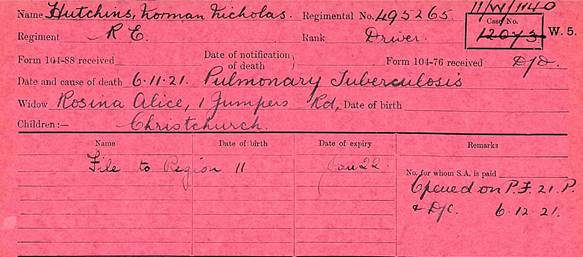 Name Hutchins, Norman Nicholas. Regimental No. 495265. 11/W/1140
Regiment R.E. Rank Driver. Case No. 12073 W. 5.
Form 104-88 received Date of notification of death Form 104-76 received D/C.
Date and cause of death 6.11.21. Pulmonary Tuberculosis
Widow Rosina Alice, 1 Jumpers Rd, Date of birth
Children:— Christchurch.
Name Date of birth Date of expiry Remarks
File to Region 11 Jan 22. No. for whom S.A. is paid
Opened on P.F. 21. P.
& D/C. 6.12.21.